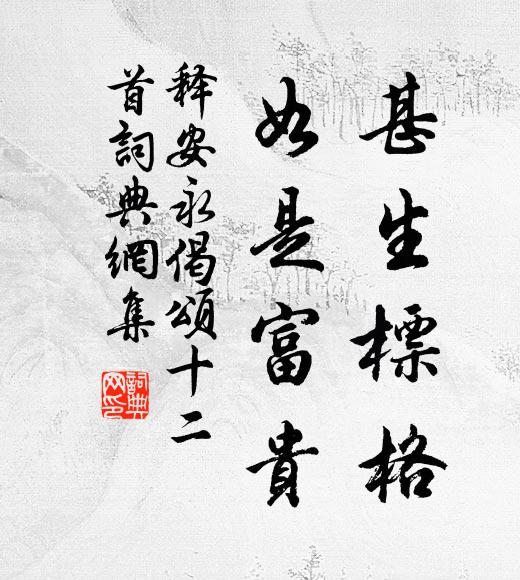 甚生標格
如是富貴
释安永偈頌十二
首詞典網集
詞典
网印